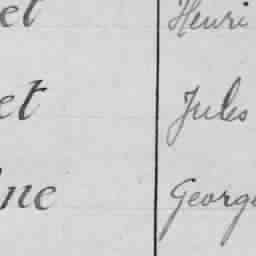 et Henri
et Jules
ne Georg